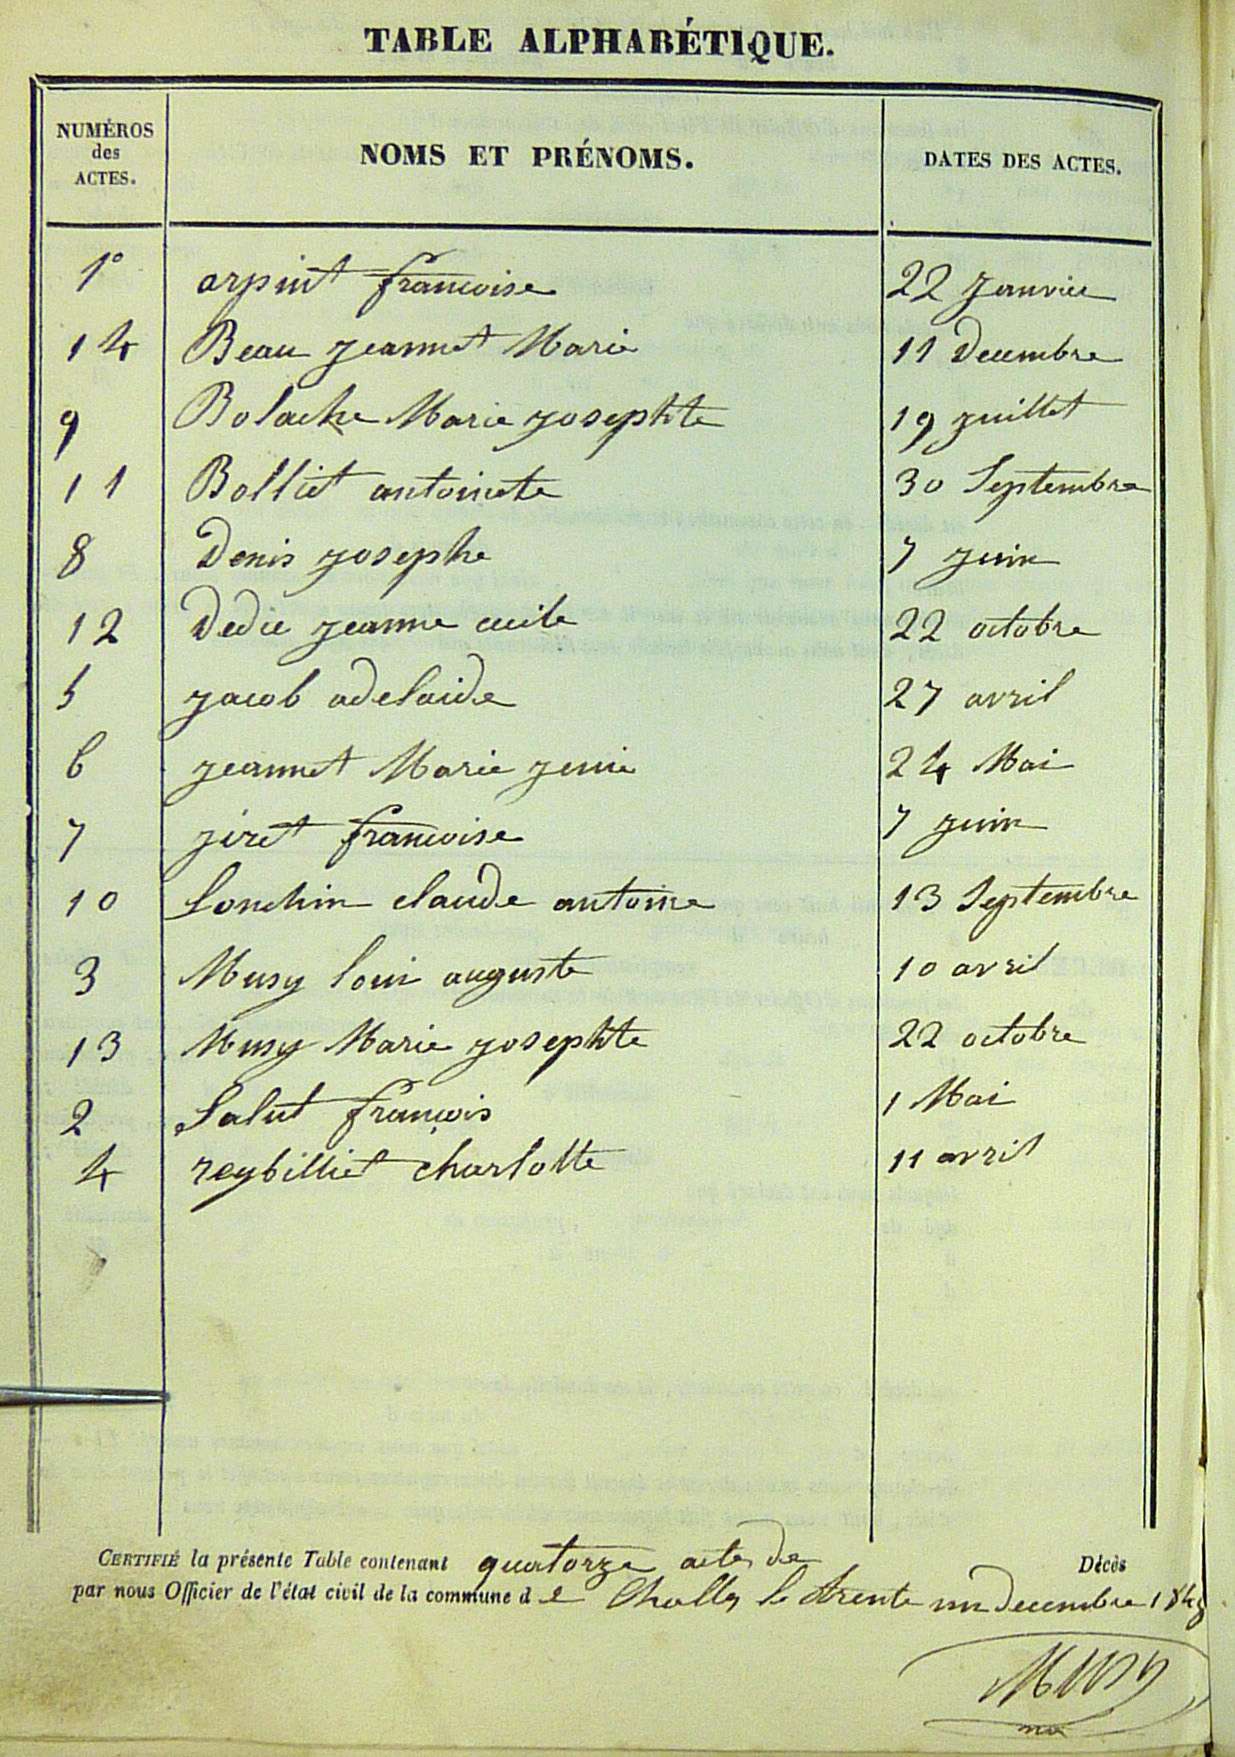 TABLE ALPHABÉTIQUE.
NUMÉROS
des
ACTES.
NOMS ET PRÉNOMS.
DATES DES ACTES.
1° arpint francoise 22 Janvier
14 Beau jeannet Marie 11 Decembre
9 Bolache Marie josephte 19 juillet
11 Bolliet antoinete 30 Septembre
8 Denis josephe 7 juin
12 Dedie jeanne cecile 22 octobre
5 jacob adelaide 27 avril
6 jeannet Marie jenie 24 Mai
7 jiret francoise 7 juin
10 Lonchin claude antoine 13 Septembre
3 Musy louis auguste 10 avril
13 Musy Marie josephte 22 octobre
2 Salut françois 1 Mai
4 reybilliet charlotte 11 avril
CERTIFIÉ la présente Table contenant quatorze actes de Décès
par nous Officier de l'état civil de la commune de Challes le trente un decembre
Musy